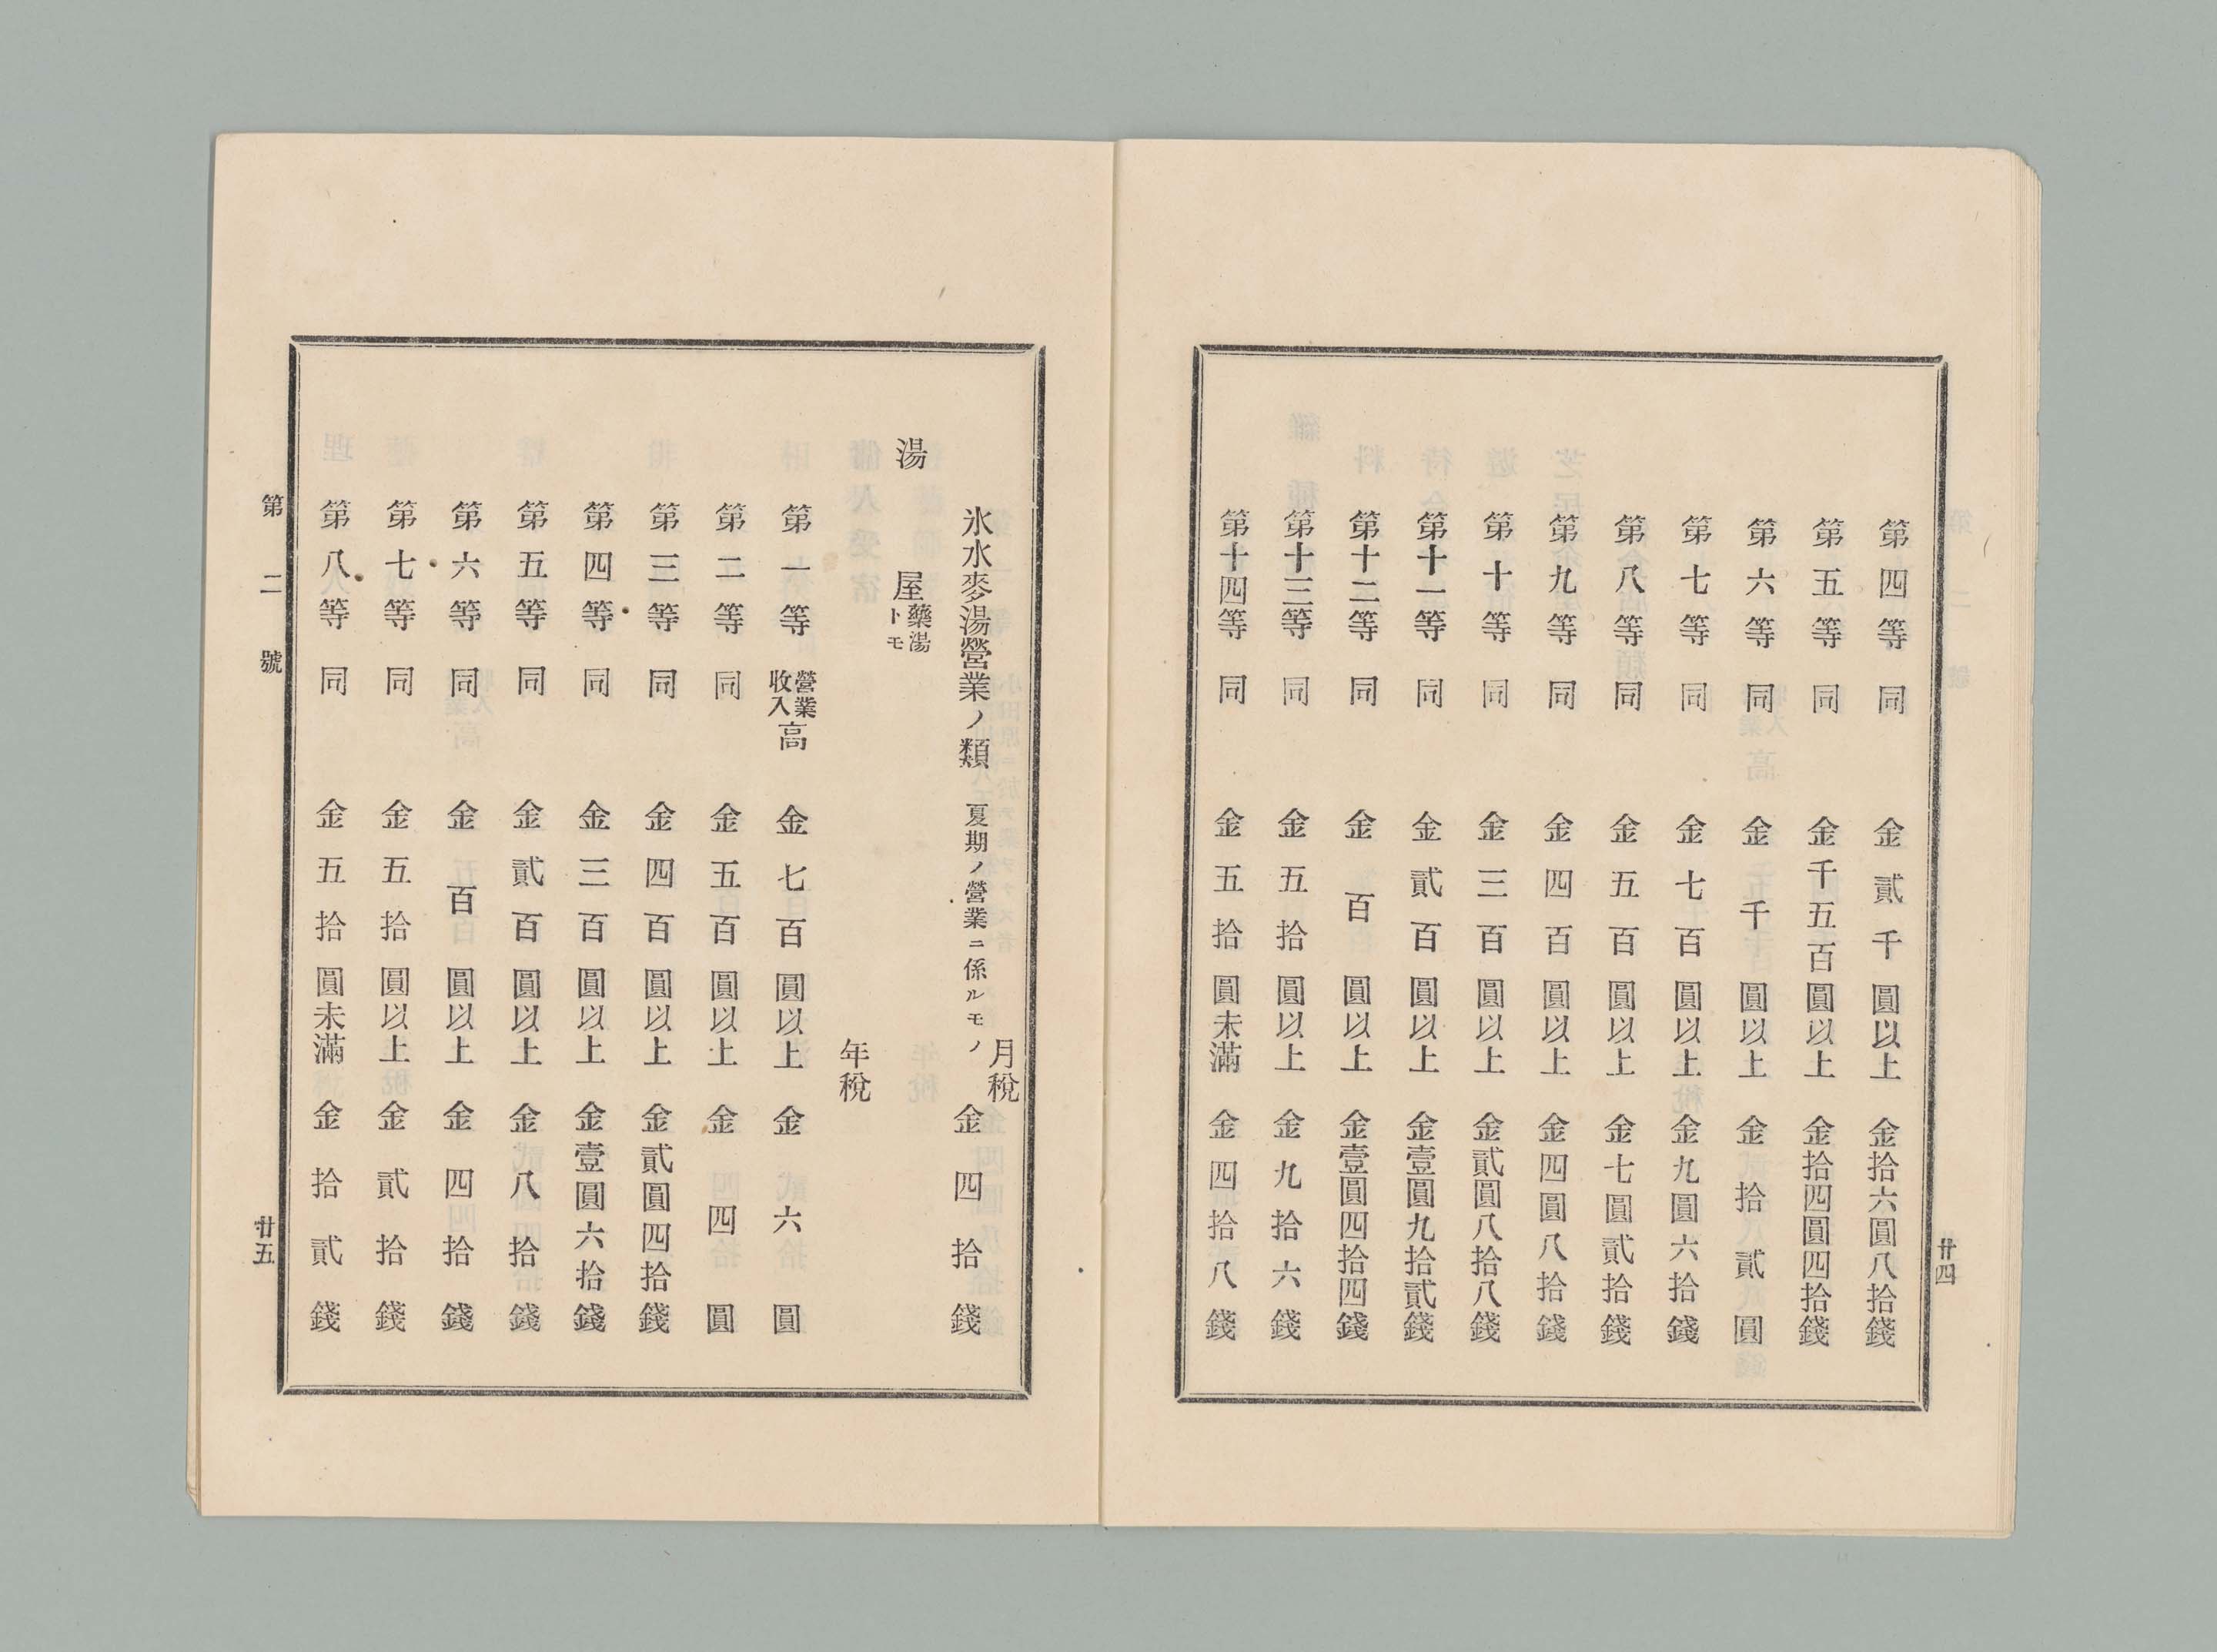 第四等同金貳千圓以上金拾六圓八拾錢
第五等同金千五百圓以上金拾四圓四拾錢
第六等同金千圓以上金拾貳圓
第七等同金七百圓以上金九圓六拾錢
第八等同金五百圓以上金七圓貳拾錢
第九等同金四百圓以上金四圓八拾錢
第十等同金三百圓以上金貳圓八拾八錢
第十一等同金貳百圓以上金壹圓九拾貳錢
第十二等同金百圓以上金壹圓四拾四錢
第十三等同金五拾圓以上金九拾六錢
第十四等同金五拾圓未滿金四拾八錢
廿四
月稅
氷水麥湯營業ノ類夏期ノ營業ニ係ルモノ金四拾錢
湯屋藥湯トモ
年稅
第一等營業收入高金七百圓以上金六圓
第二等同金五百圓以上金四圓
第三等同金四百圓以上金貳圓四拾錢
第四等同金三百圓以上金壹圓六拾錢
第五等同金貳百圓以上金八拾錢
第六等同金百圓以上金四拾錢
第七等同金五拾圓以上金貳拾錢
第八等同金五拾圓未滿金拾貳錢
第二號
廿五